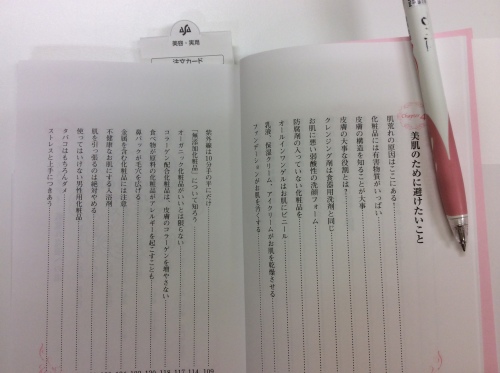 美容・実用
注文カード
美肌のために避けたいこと
肌荒れの原因はここにある!
化粧品には有害物質がいっぱい
皮膚の構造を知ることが大事
皮膚の大事な役割とは?
クレンジング剤は食器用洗剤と同じ
お肌に悪い弱酸性の洗顔フォーム
防腐剤の入っていない化粧品を
オールインワンゲルはお肌にビニール
乳液、保湿クリーム、アイクリームがお肌を乾燥させる
ファンデーションがお肌を汚くする
紫外線は10分手の平にだけ
「無添加化粧品」について知ろう
オーガニック化粧品がいいとは限らない
コラーゲン配合化粧品は、皮膚のコラーゲンを増やさない
食べ物が原料の化粧品がアレルギーを起こすことも
鼻パックが毛穴を広げる
金属を含む化粧品には注意
不健康なお肌にする入浴剤
肌を引っ張るのは絶対やめる
使ってはいけない男性用化粧品
タバコはもちろんダメ
ストレスと上手につきあう
109
114
117
118